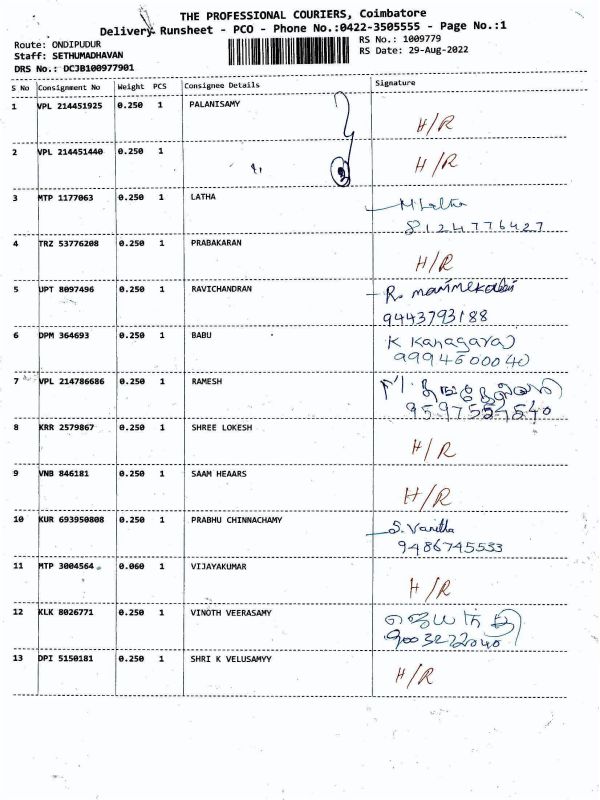 THE PROFESSIONAL COURIERS, Coimbatore
Delivery Runsheet - PCO - Phone No.:0422-3505555 - Page No.:1
Route: ONDIPUDUR
RS No.: 1009779
Staff: SETHUMADHAVAN
RS Date: 29-Aug-2022
DRS No.: DCJB100977901
S No Consignment No Weight PCS Consignee Details Signature
1 VPL 214451925 0.250 1 PALANISAMY H/R
2 VPL 214451440 0.250 1 2 H/R
3 MTP 1177063 0.250 1 LATHA M Latha
8124776427
4 TRZ 53776208 0.250 1 PRABAKARAN H/R
5 UPT 8097496 0.250 1 RAVICHANDRAN R.
9443793188
6 DPM 364693 0.250 1 BABU K Kanagaraj
9994600040
7 VPL 214786686 0.250 1 RAMESH
9597554540
8 KRR 2579867 0.250 1 SHREE LOKESH H/R
9 VNB 846181 0.250 1 SAAM HEAARS H/R
10 KUR 693950808 0.250 1 PRABHU CHINNACHAMY S. Vanitha
9486745533
11 MTP 3004564 0.060 1 VIJAYAKUMAR H/R
12 KLK 8026771 0.250 1 VINOTH VEERASAMY
9003222040
13 DPI 5150181 0.250 1 SHRI K VELUSAMYY H/R